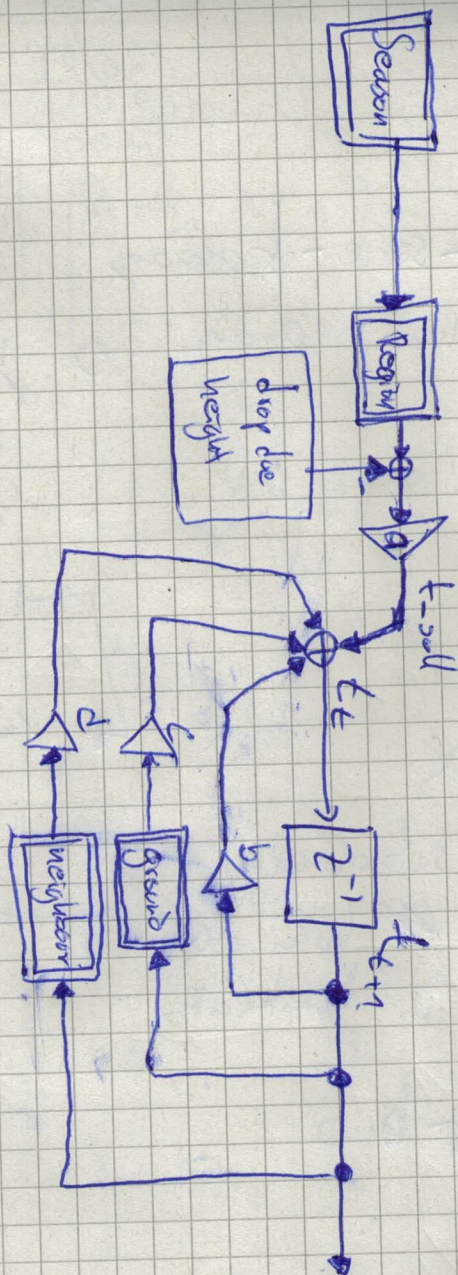 Season
Region
drop due
height
-
a
t-soll
t_t
z^-1
t_t+1
b
c
ground
d
neighbour